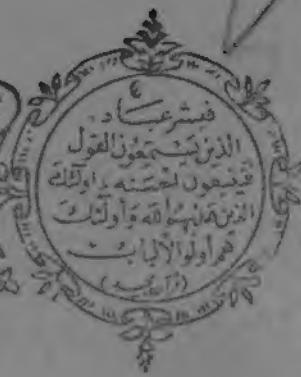 ٤
فبشر عباد
الذين يستمعون القول
فيتبعون احسنه ٠ اولئك
الذين هديهم الله واولئك
هم اولوا الالباب
(قرآن مجيد)